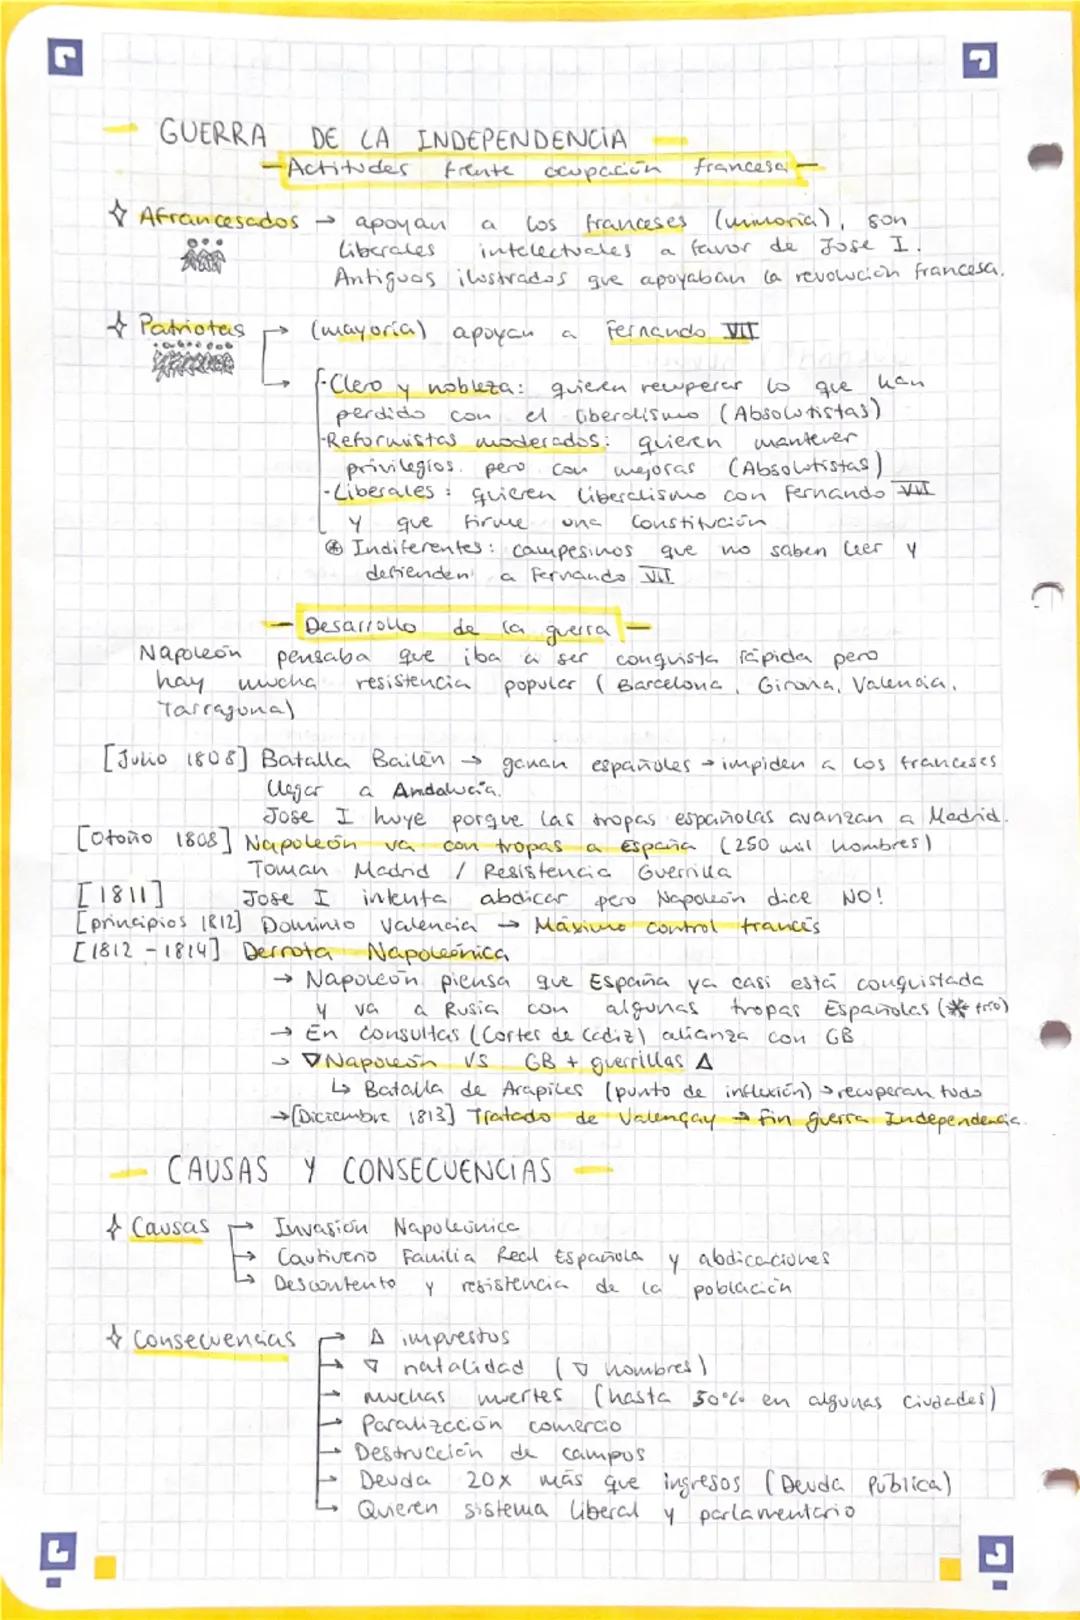 GUERRA DE LA INDEPENDENCIA
Actitudes frente ocupación francesa
Afrancesados → apoyan a los franceses (minoría), son
liberales intelectuales a favor de Jose I.
Antiguos ilustrados que apoyaban la revolución francesa.
Patriotas → (mayoría) apoyan a Fernando VII
→ ·Clero y nobleza: quieren recuperar lo que han
perdido con el liberalismo (Absolutistas)
·Reformistas moderados: quieren mantener
privilegios pero con mejoras (Absolutistas)
·Liberales: quieren liberalismo con Fernando VII
y que firme una Constitución
⊛ Indiferentes: campesinos que no saben leer y
defienden a Fernando VII
Desarrollo de la guerra
Napoleón pensaba que iba a ser conquista rápida pero
hay mucha resistencia popular (Barcelona, Girona, Valencia,
Tarragona)
[Julio 1808] Batalla Bailén → ganan españoles → impiden a los franceses
llegar a Andalucía.
Jose I huye porque las tropas españolas avanzan a Madrid.
[Otoño 1808] Napoleón va con tropas a España (250 mil hombres)
Toman Madrid / Resistencia Guerrilla
[1811] Jose I intenta abdicar pero Napoleón dice NO!
[principios 1812] Dominio Valencia → Máximo control francés
[1812 - 1814] Derrota Napoleónica
→ Napoleón piensa que España ya casi está conquistada
y va a Rusia con algunas tropas Españolas (* frío)
→ En consultas (Cortes de Cádiz) alianza con GB
→ ∇ Napoleón VS GB + guerrillas Δ
↳ Batalla de Arapiles (punto de inflexión) → recuperan todo
→ [Diciembre 1813] Tratado de Valençay → Fin guerra Independencia.
CAUSAS Y CONSECUENCIAS
Causas → Invasión Napoleónica
→ Cautiverio Familia Real Española y abdicaciones
→ Descontento y resistencia de la población
Consecuencias → Δ impuestos
→ ∇ natalidad (∇ hombres)
→ muchas muertes (hasta 50% en algunas ciudades)
→ Paralización comercio
→ Destrucción de campos
→ Deuda 20x más que ingresos (Deuda Pública)
→ Quieren sistema liberal y parlamentario